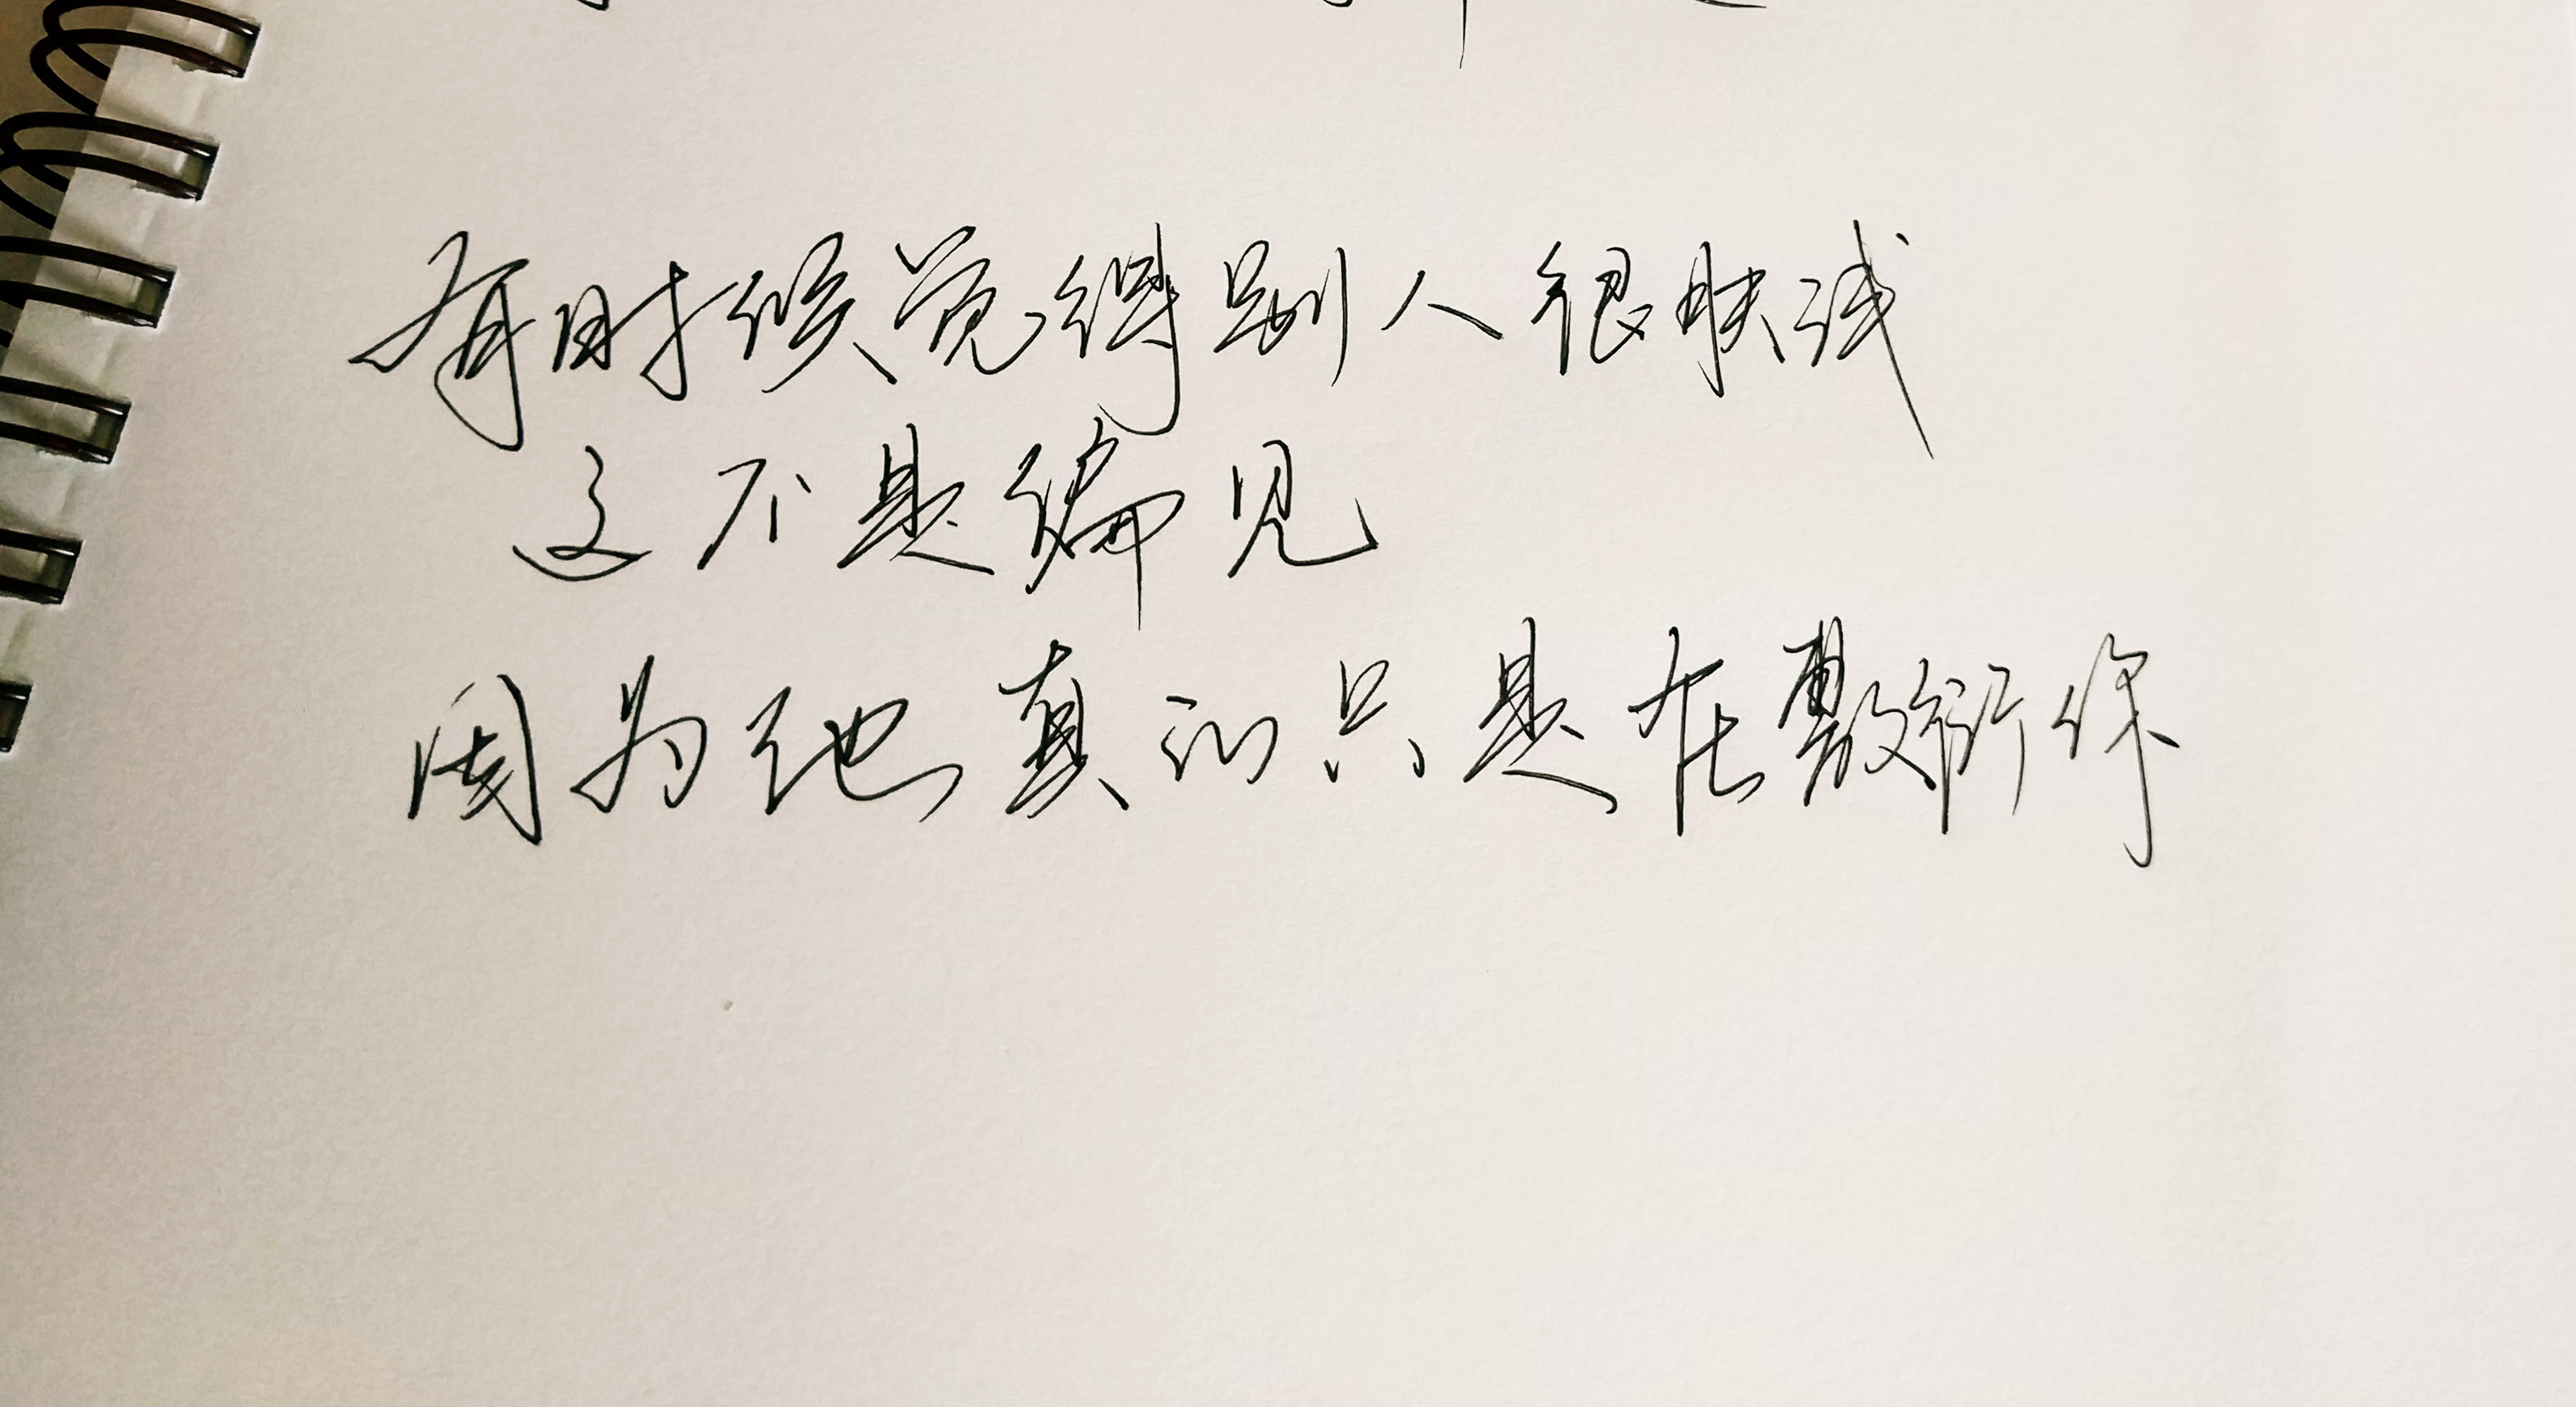 有时候觉得别人很肤浅
这不是偏见
因为他真的只是在敷衍你